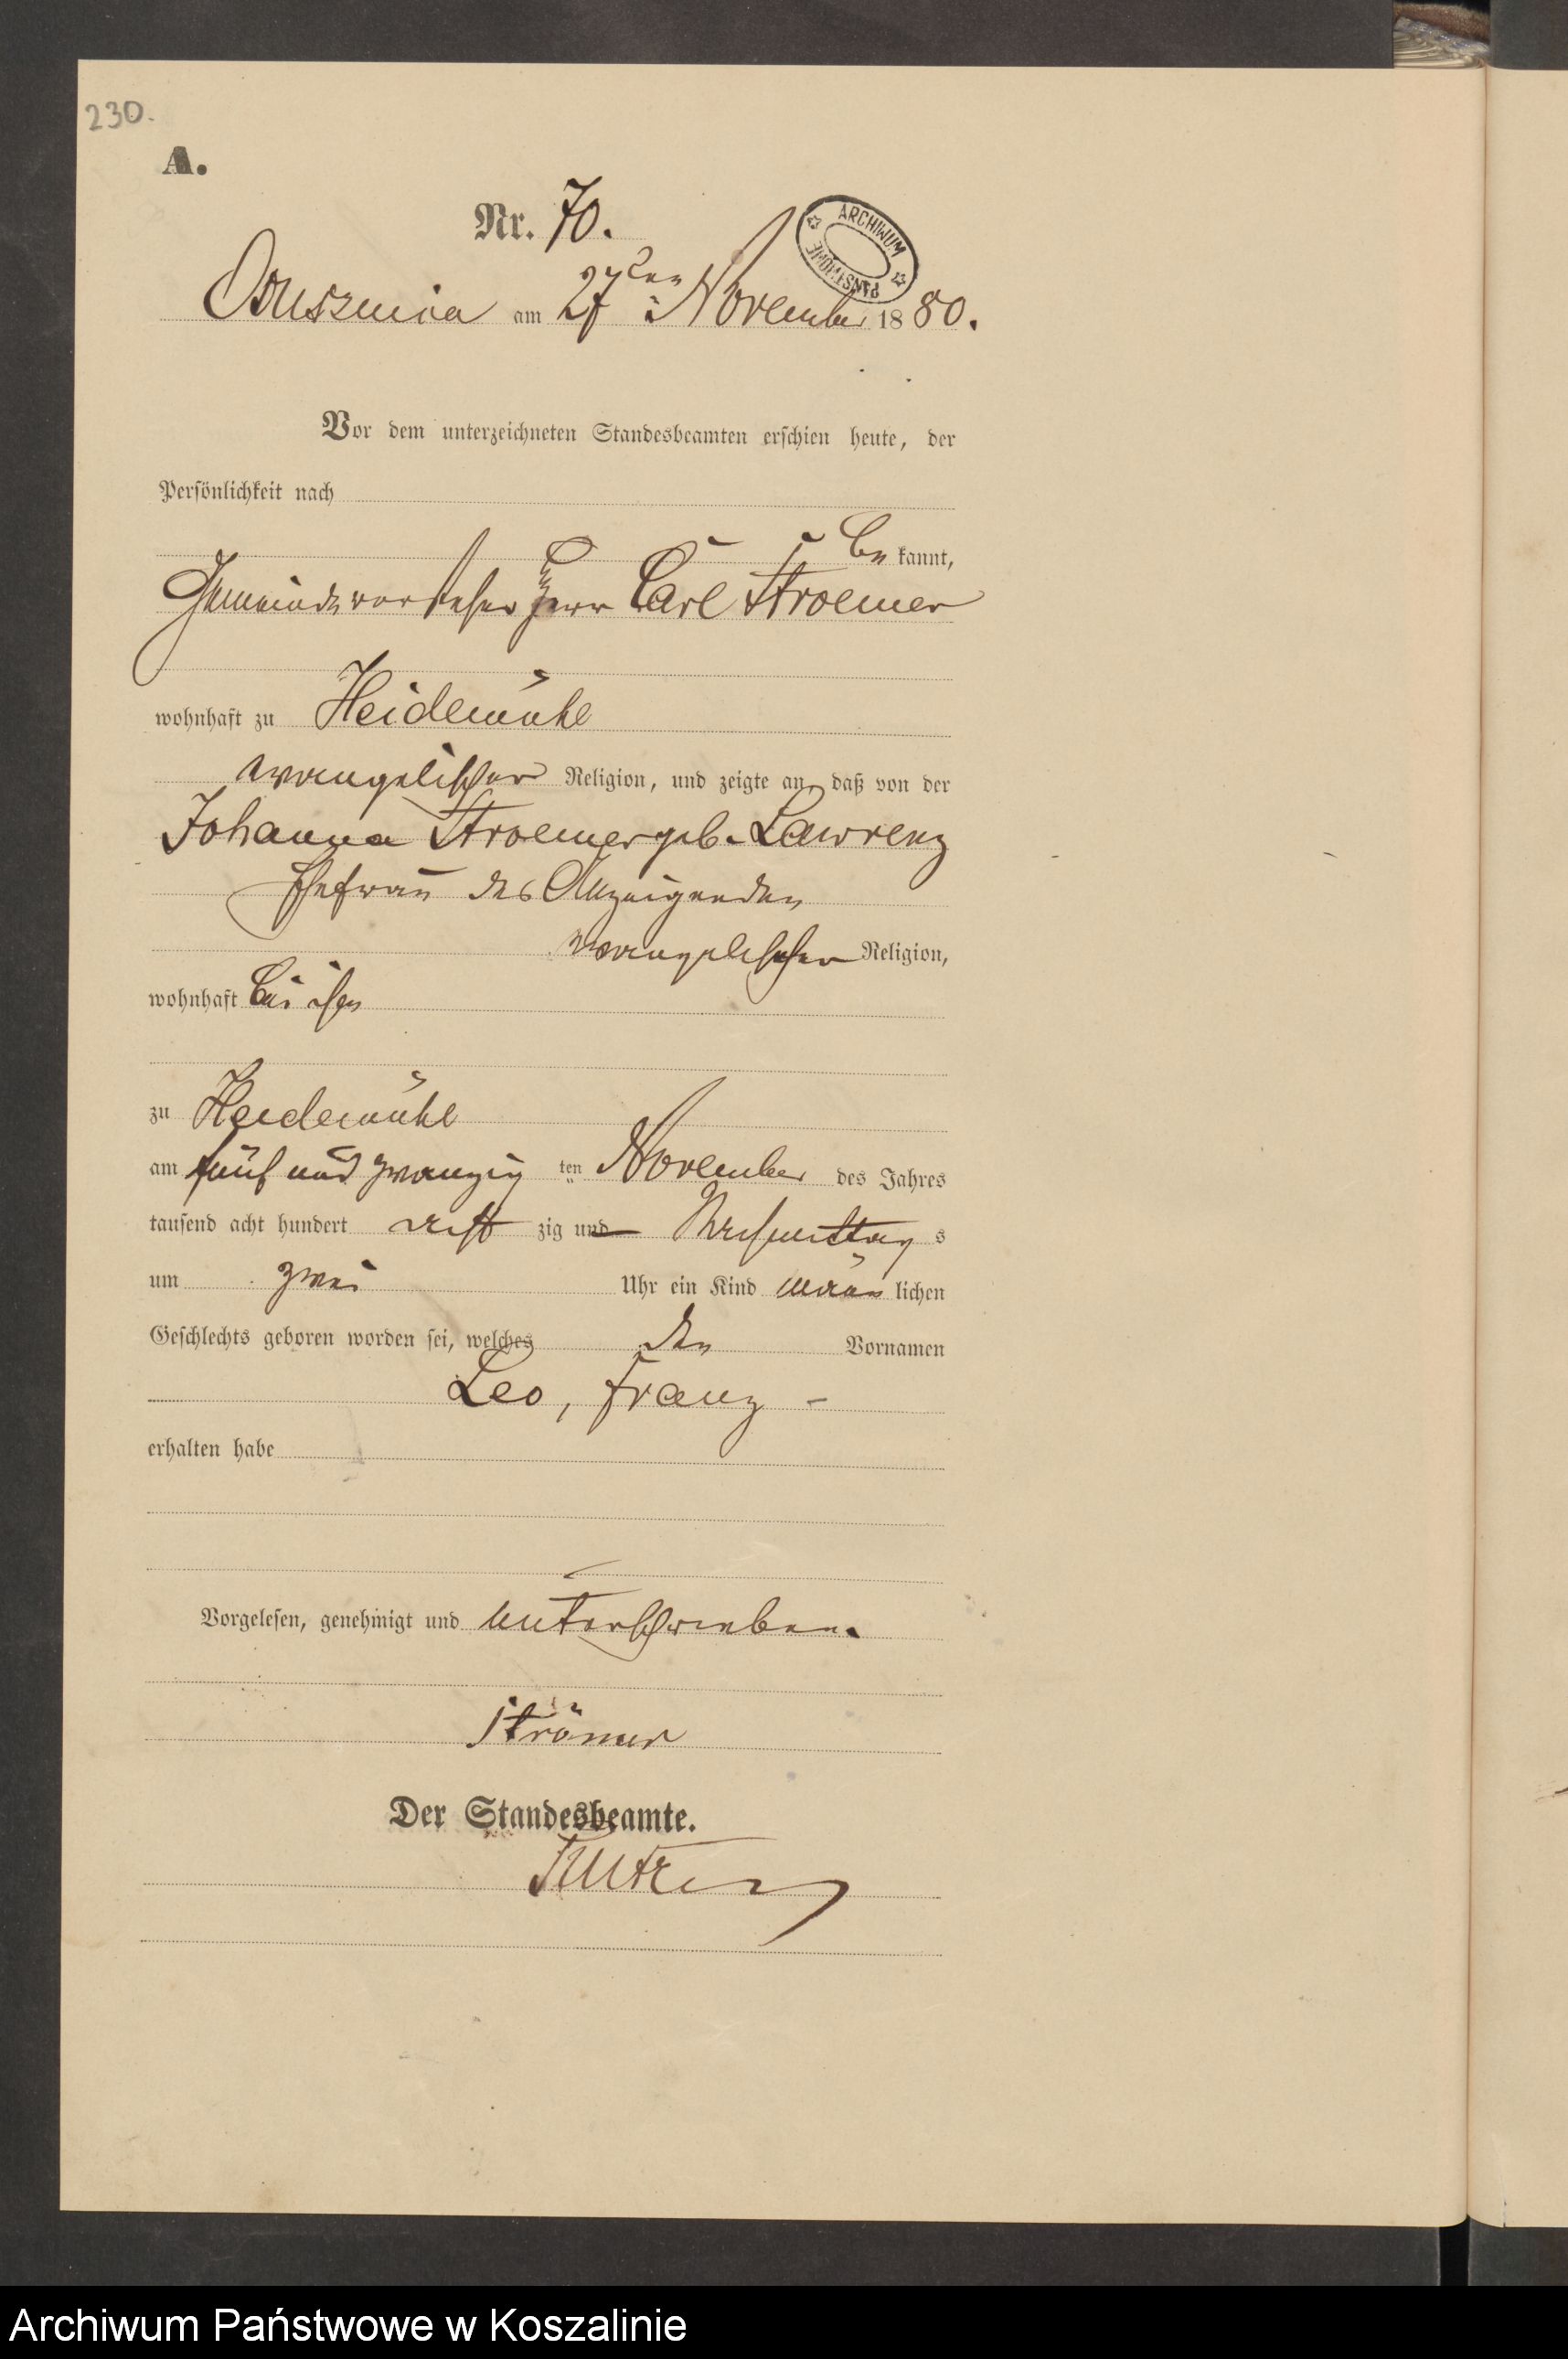 230.
A.
Nr. 70.
ARCHIWUM PAŃSTWOWE
Osusznica am 27ten November 1880.
Vor dem unterzeichneten Standesbeamten erschien heute, der
Persönlichkeit nach
be kannt,
Gemeindevorsteher Herr Carl Stroemer
wohnhaft zu Heidemühl
evangelischer Religion, und zeigte an, daß von der
Johanna Stroemer geb. Lawrenz
Ehefrau des Anzeigenden
evangelischer Religion,
wohnhaft bei ihm
zu Heidemühl
am fünf und zwanzig ten November des Jahres
tausend acht hundert acht zig und Nachmittag s
um zwei Uhr ein Kind männ lichen
Geschlechts geboren worden sei, welches den Vornamen
Leo, Franz -
erhalten habe
Vorgelesen, genehmigt und unterschrieben.
Strömer
Der Standesbeamte.
Archiwum Państwowe w Koszalinie